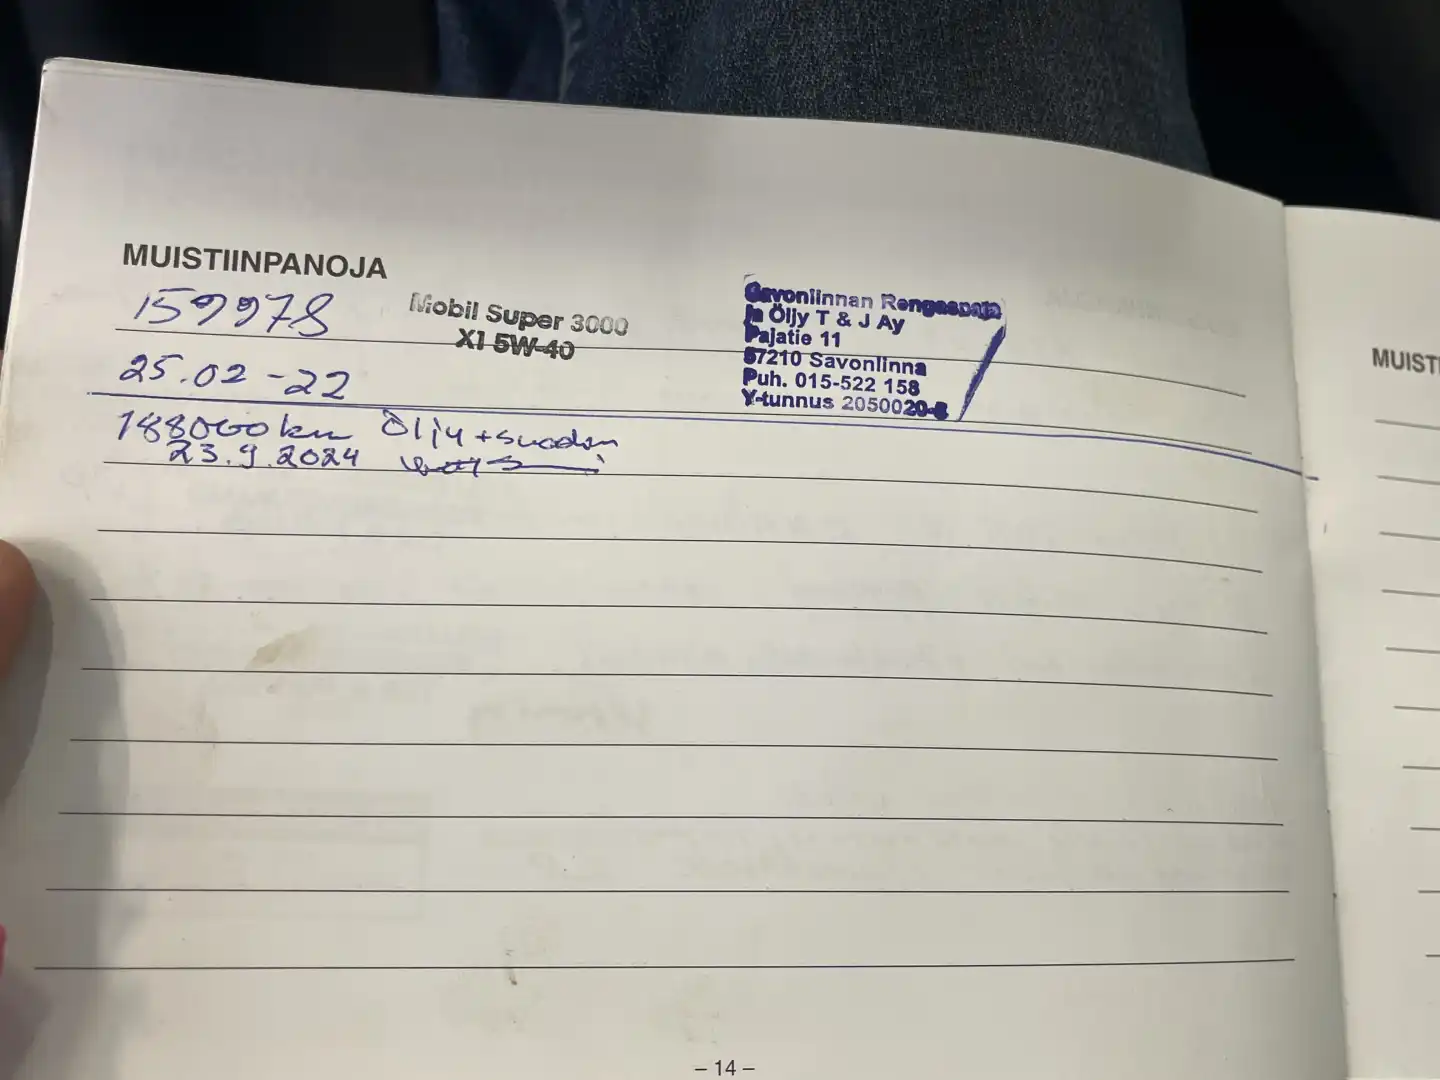 MUISTIINPANOJA
159978
Mobil Super 3000
X1 5W-40
Savonlinnan Rengaspaja
ja Öljy T & J Ay
Pajatie 11
57210 Savonlinna
Puh. 015-522 158
Y-tunnus 2050020-8
25.02-22
188000 km Öljy + suodin
23.9.2024
– 14 –
MUISTI